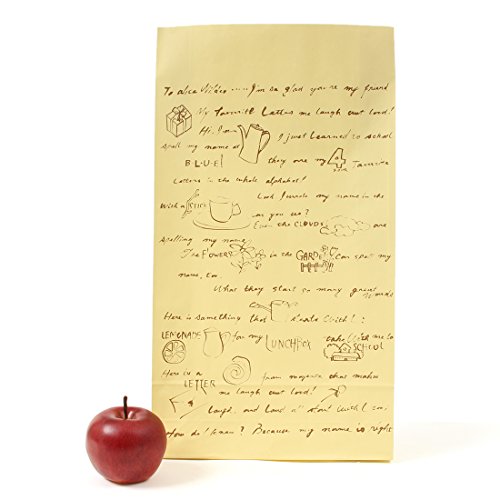 To Alice Wilder ..... I'm so glad you're my friend
My favourite Letters me laugh out loud!
Hi, I'm I just learned to school
spell my name at
B.L.U.E! they are my 4 favorite
Letters in the whole alphabet!
Look I wrote my name in the
With a STICK
can you see?
Even the CLOUDS are
spelling my name
The FLOWERS in the GARDEN can spell my
name, too.
What they start so many great words
Here is something that starts with L:
LEMONADE for my LUNCHBOX take with me to SCHOOL
Here is a LETTER from magenta that makes
me laugh out loud!
Laugh, and Loud all start with L too
How do I know? Because my name is right